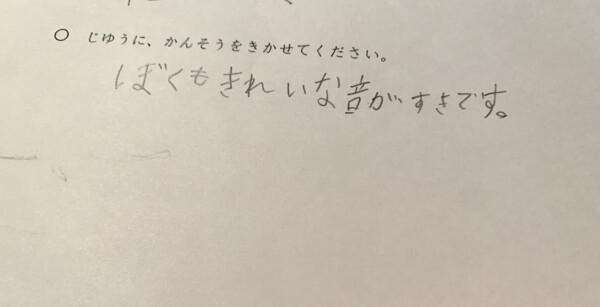 ○ じゆうに、かんそうをきかせてください。
ぼくもきれいな音がすきです。